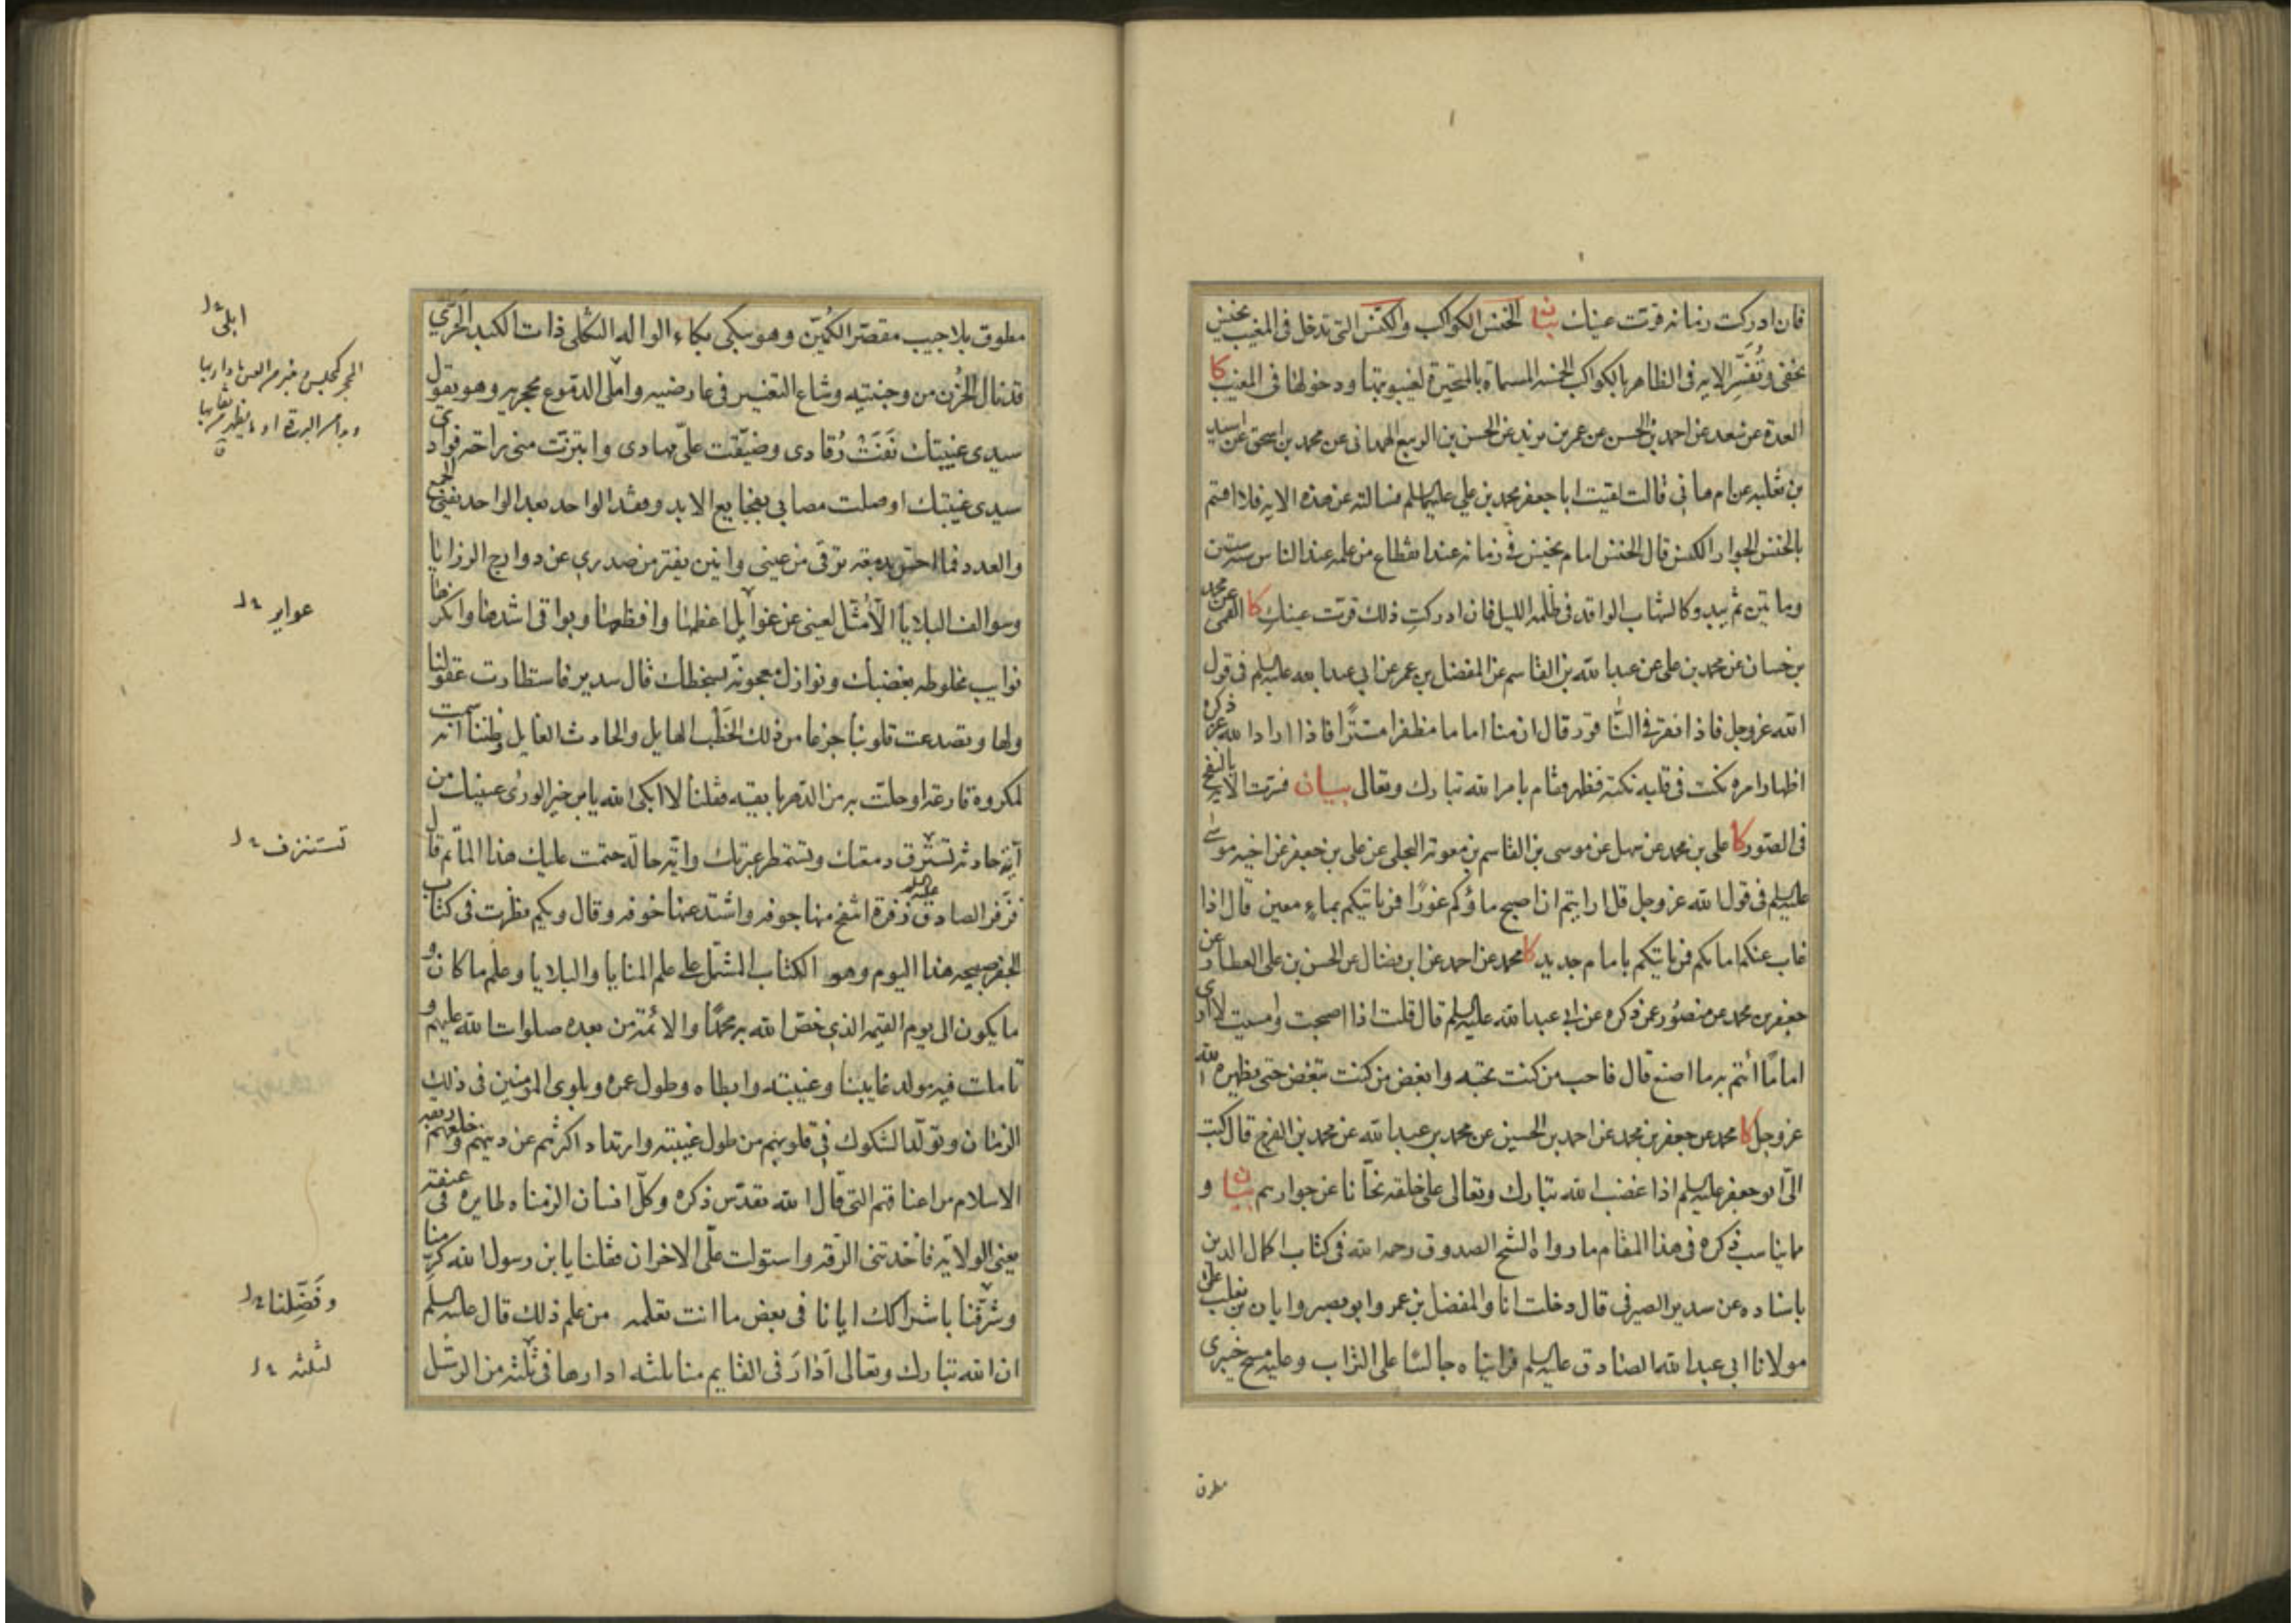 فان ادركت زمانه قرّت عينك بيان الخنس الكواكب والكنس التى تدخل فى المغيب بخنس
تختفى وتُفسِّر الايه فى الظاهر بالكواكب الخمسه المسماة بالمتحيرة لغيبوبتها ودخولها فى المغيب كا
العدة عن سعد عن احمد بن الحسن عن عمر بن يزيد عن الحسن بن الربيع الهمدانى عن محمد بن اسحق عن اسيد
بن ثعلبه عن ام هانى قالت لقيت ابا جعفر محمد بن على عليهما السلم فسالته عن هذه الايه فلا اقسم
بالخنس الجوار الكنس قال الخنس امام يخنس فى زمانه عند انقطاع من علمه عند الناس سنه ستين
وماتين ثم يبدو كالشهاب الواقد فى ظلمه الليل فان ادركتِ ذلك قرّت عينكِ كا القمى عن محمد
بن حسان عن محمد بن على عن عبد الله بن القاسم عن المفضل بن عمر عن ابى عبد الله عليه السلم فى قول
الله عز وجل فاذا نقر فى الناقور قال ان منا اماما مظفرا مستترًا فاذا اراد الله عز ذكره
اظهار امره نكت فى قلبه نكته فظهر فقام بامر الله تبارك وتعالى بيان فسرت الايه بالنفخ
فى الصّور كا على بن محمد عن سهل عن موسى بن القاسم بن معوية البجلى عن على بن جعفر عن اخيه موسى
عليه السلم فى قول الله عز وجل قل ارايتم ان اصبح ماؤكم غورًا فمن ياتيكم بماءٍ معين قال اذا
غاب عنكم امامكم فمن ياتيكم بامام جديد كا محمد عن احمد عن ابن فضال عن الحسن بن على العطار عن
جعفر بن محمد عن منصور عن ذكره عن ابى عبد الله عليه السلم قال قلت اذا اصبحت وامسيت لا ارى
امامًا أئتم به ما اصنع قال فاحب من كنت تحبه وابغض من كنت تبغض حتى يظهره الله
عز وجل كا محمد عن جعفر بن محمد عن احمد بن الحسين عن محمد بن عبد الله عن محمد بن الفرج قال كتب
الىّ ابو جعفر عليه السلم اذا غضب الله تبارك وتعالى على خلقه نحّانا عن جوارهم بيان و
مما يناسب ذكره فى هذا المقام ما رواه الشيخ الصدوق رحمه الله فى كتاب اكمال الدين
باسناده عن سدير الصيرفى قال دخلت انا والمفضل بن عمر وابو بصير وابان بن تغلب على
مولانا ابى عبد الله الصادق عليه السلم فرايناه جالسًا على التراب وعليه مسح خيبرى
مطوق
مطوق بلا جيب مقصّر الكُمّين وهو يبكى بكاء الواله الثكلى ذات الكبد الحَرّي
قد نال الحُزن من وجنتيه وشاع التغيير فى عارضيه واملى الدموع محجريه وهو يقول
سيدى غيبتك نَفَتْ رُقادى وضيّقت علىّ مهادى وابتزّت منى راحة فوادى
سيدى غيبتك اوصلت مصابى بفجايع الابد وفقد الواحد بعد الواحد يفنى الجمع
والعدد فما احس بدمعة ترقى من عينى وانين يفتر من صدري عن دوارج الرزايا
وسوالف البلايا الا مُثّل لعينى عن غوايل اعظمها وافظعها وبواقى اشدها وانكرها
نوايب مخلوطه بغضبك ونوازل معجونة بسخطك قال سدير فاستطارت عقولنا
ولها وتصدعت قلوبنا جزعا من ذلك الخَطْب الهايل والحادث الغايل وظننا انه سمت
لمكروه قارعة او حلت به من الدهر بايقة فقلنا لا ابكى الله يابن خير الورى عينيك من
اية حادثه تستزف دمعتك وتستمطر عبرتك واية حالة حتمت عليك هذا الماتم قال
فزفر الصادق عليه السلم زفرة انتفخ منها جوفه واشتد عنها خوفه وقال ويكم نظرت فى كتاب
الجفر صبيحه هذا اليوم وهو الكتاب المشتمل على علم المنايا والبلايا وعلم ما كان و
ما يكون الى يوم القيمه الذي خصّ الله به محمدًا والائمة من بعده صلوات الله عليهم و
تاملت فيه مولد غايبنا وغيبته وابطاه وطول عمره وبلوى المؤمنين فى ذلك
الزمان وتولّد الشكوك فى قلوبهم من طول غيبته وارتداد اكثرهم عن دينهم وخلعهم ربقه
الاسلام من اعناقهم التى قال الله تقدّس ذكره وكلّ انسان الزمناه طايره فى عنقه
يعنى الولاية فاخذتنى الرّقه واستولت علىّ الاحزان فقلنا يابن رسول الله كرّمنا
وشرّفنا باشراكك ايانا فى بعض ما انت تعلمه من علم ذلك قال عليه السلم
ان الله تبارك وتعالى اَدَارَ فى القايم منا ثلثه ادارها فى ثلثة من الرسل
ابلى
عواير
تستنزف
وفَضّلنا
لثلثه